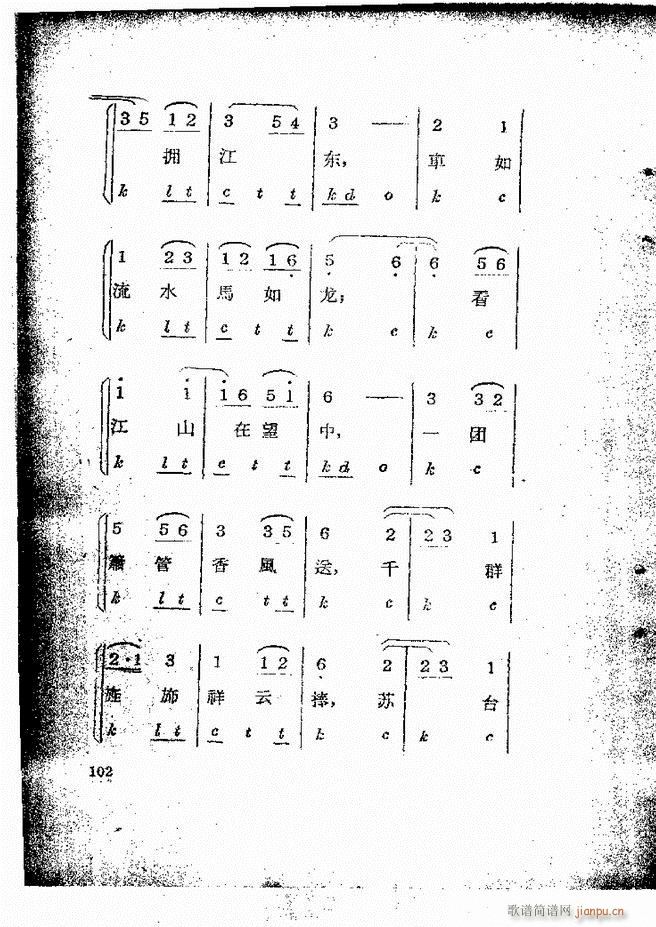 3 5 1 2 | 3 5 4 | 3 — | 2 1
拥 江 东, 車 如
k l t | c t t | k d o | k c
1 2 3 | 1 2 1 6 | 5 6 | 6 5 6
流 水 馬 如 龙; 看
k l t | c t t | k c | k c
1 1 | 1 6 5 1 | 6 — | 3 3 2
江 山 在 望 中, 一 团
k l t | c t t | k d o | k c
5 5 6 | 3 3 5 | 6 2 | 2 3 1
簫 管 香 風 送, 千 群
k l t | c t t | k c | k c
2·1 3 | 1 1 2 | 6 2 | 2 3 1
旌 斾 祥 云 捧, 苏 台
k l t | c t t | k c | k c
102
歌谱简谱网 jianpu.cn